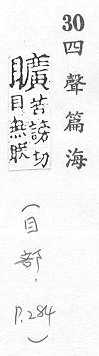 30四聲篇海
矌苦謗切
目無眹
(目部. P.284)